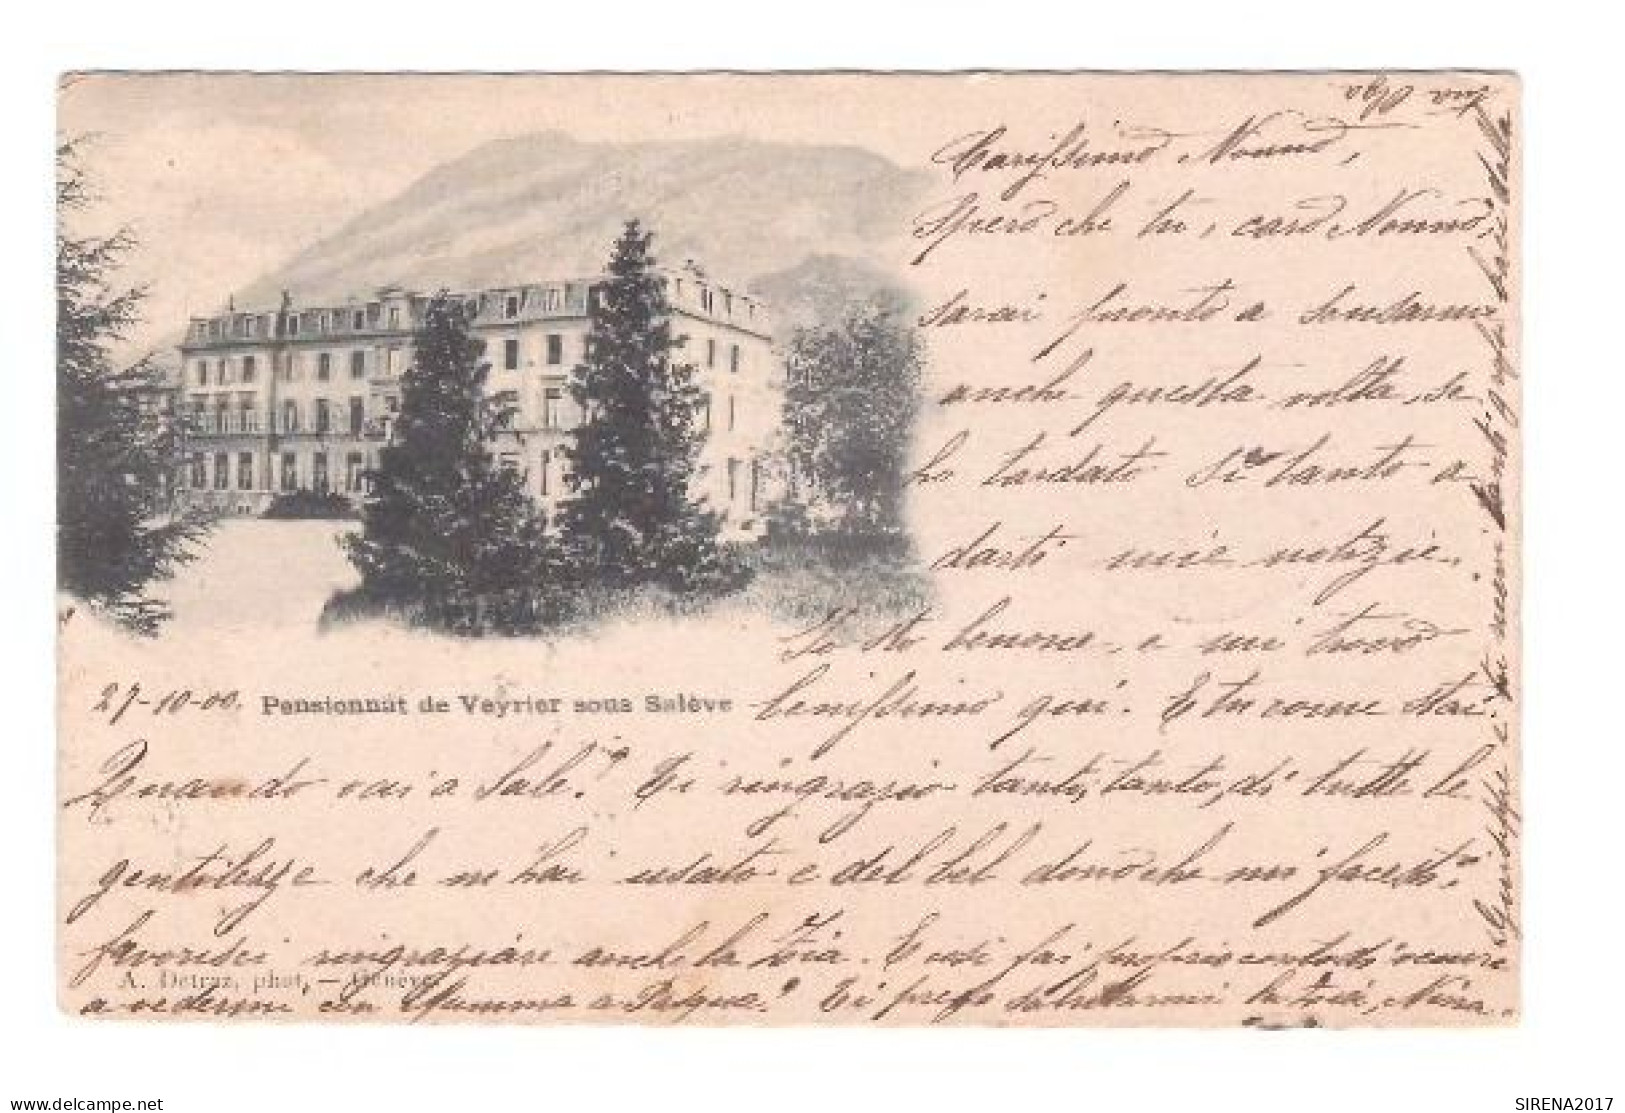 Carissimo Nonno,
Spero che tu, caro Nonno,
sarai pronto a scusarmi
anche questa volta, se
ho tardato sì tanto a
darti mie notizie.
Io sto benone, e mi trovo
27-10-00. Pensionnat de Veyrier sous Salève benissimo qui. E tu come stai?
Quando vai a Sale? Ti ringrazio tanto, tanto, di tutte le
gentilezze che m'hai usato e del bel dono che mi facesti,
favorisci ringraziare anche la Zia. E così fai proprio conto di venire
A. Detraz, phot, — Genève.
a vedermi con Mamma a Pasqua? Ti prego salutarmi la Zia, Nina,
Giuseppe e tu ricevi tanti baci dalla
tua Olga
www.delcampe.net
SIRENA2017